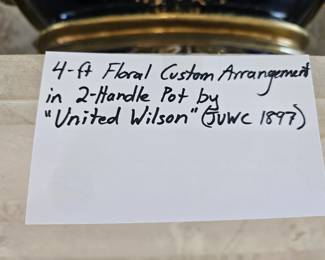 4-ft Floral Custom Arrangement
in 2-Handle Pot by
"United Wilson" (JUWC 1897)